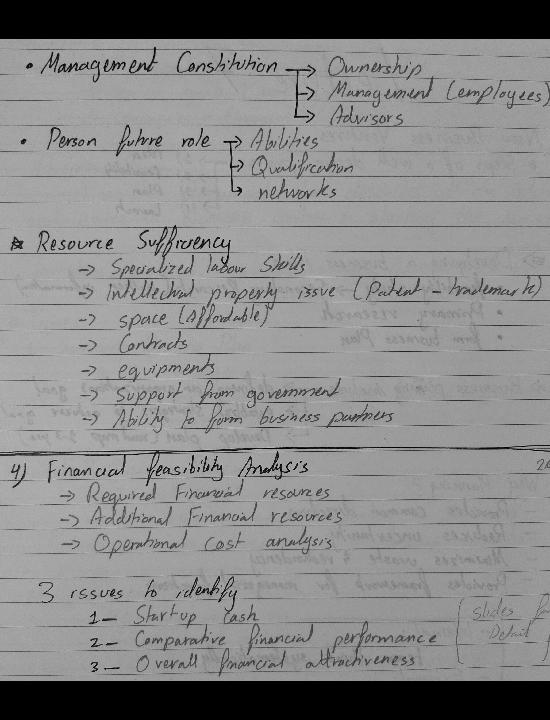 • Management Constitution → Ownership
→ Management (employees)
→ Advisors
• Person future role → Abilities
→ Qualification
→ networks
* Resource Sufficiency
→ Specialized labour Skills
→ Intellectual property issue (Patent - trademark)
→ space (Affordable)
→ Contracts
→ equipments
→ Support from government
→ Ability to form business partners
4) Financial feasibility Analysis
→ Required Financial resources
→ Additional Financial resources
→ Operational cost analysis
3 issues to identify
1- Startup cash
2- Comparative financial performance
3- Overall financial attractiveness
Slides
Detail